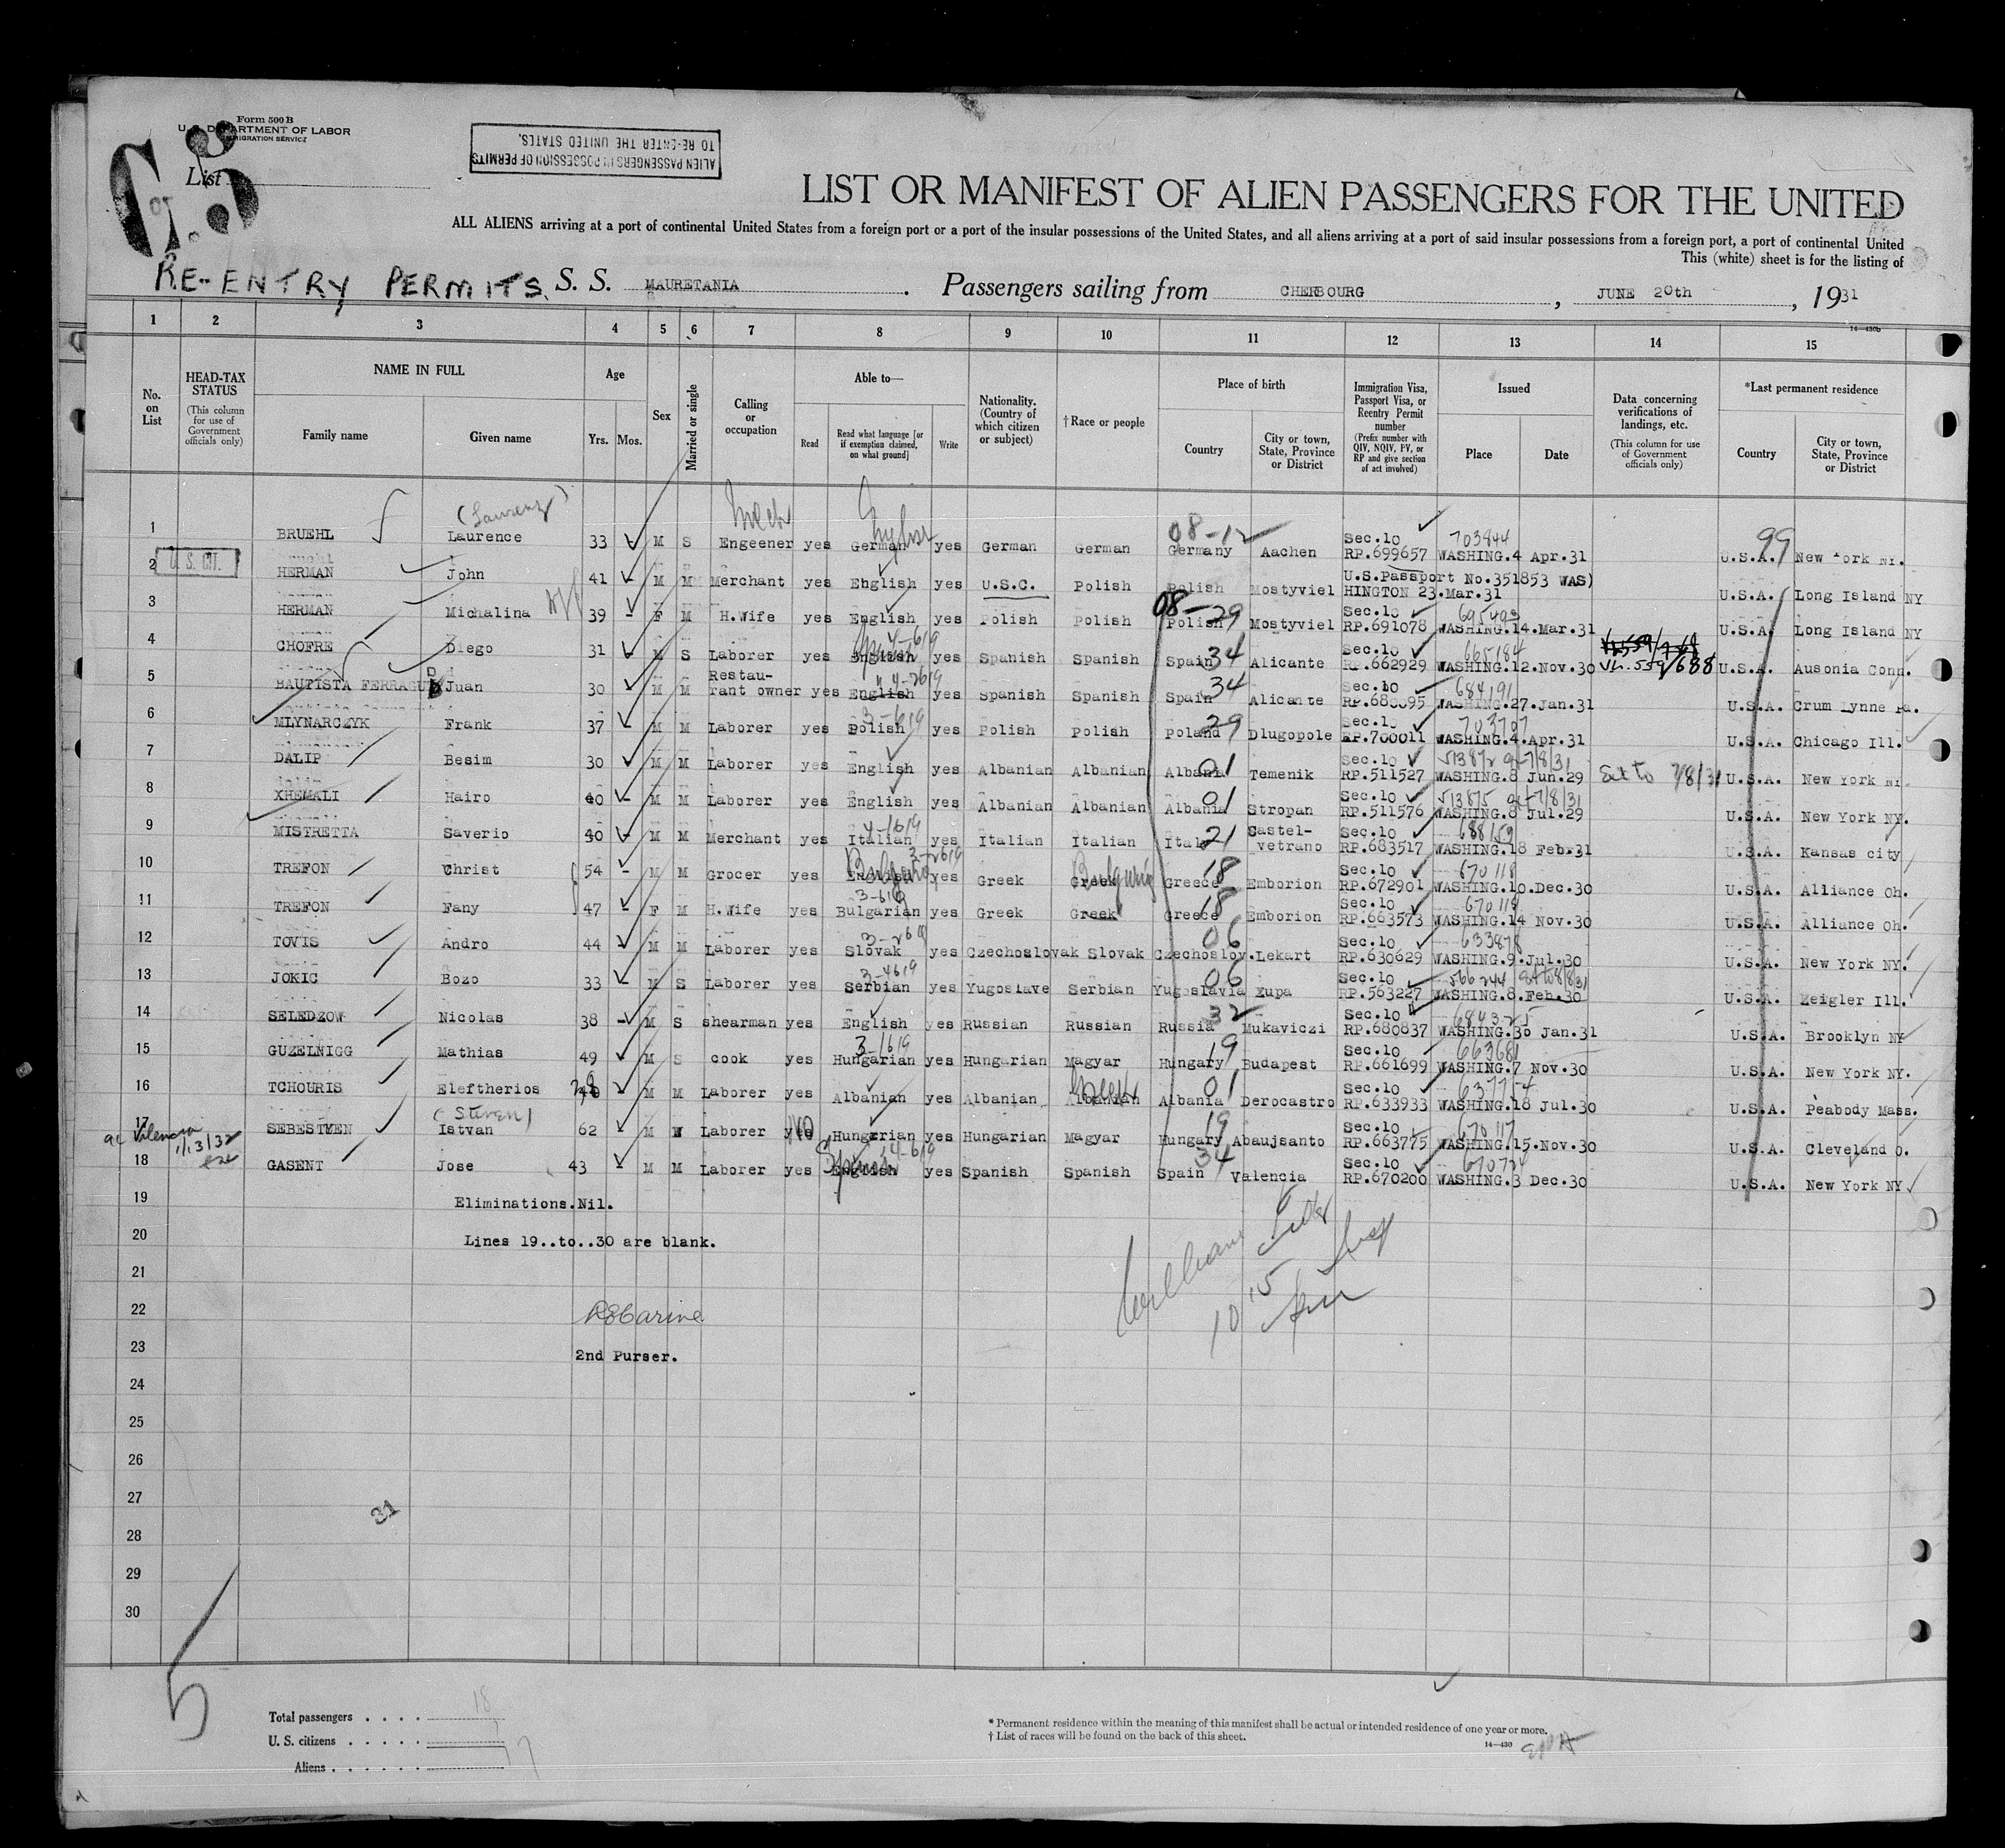 Form 500 B
U. S. DEPARTMENT OF LABOR
IMMIGRATION SERVICE
ALIEN PASSENGERS IN POSSESSION OF PERMITS
TO RE-ENTER THE UNITED STATES.
List
G.S
LIST OR MANIFEST OF ALIEN PASSENGERS FOR THE UNITED
ALL ALIENS arriving at a port of continental United States from a foreign port or a port of the insular possessions of the United States, and all aliens arriving at a port of said insular possessions from a foreign port, a port of continental United
This (white) sheet is for the listing of
RE-ENTRY PERMITS. S. S. MAURETANIA . Passengers sailing from CHERBOURG , JUNE 20th , 1931
14—430b
1 2 3 4 5 6 7 8 9 10 11 12 13 14 15
No. on List
HEAD-TAX STATUS (This column for use of Government officials only)
NAME IN FULL
Family name Given name
Age
Yrs. Mos.
Sex
Married or single
Calling or occupation
Able to—
Read Read what language [or if exemption claimed, on what ground] Write
Nationality. (Country of which citizen or subject)
† Race or people
Place of birth
Country City or town, State, Province or District
Immigration Visa, Passport Visa, or Reentry Permit number (Prefix number with QIV, NQIV, PV, or RP and give section of act involved)
Issued
Place Date
Data concerning verifications of landings, etc. (This column for use of Government officials only)
*Last permanent residence
Country City or town, State, Province or District
1 BRUEHL Laurence 33 M S Engeener yes German yes German German Germany Aachen Sec.10 RP.699657 WASHING.4 Apr.31 U.S.A. New York NY.
08-12 703844 99
2 U. S. CIT. HERMAN John 41 - M M Merchant yes English yes U.S.C. Polish Polish Mostyviel U.S.Passport No.351853 WAS) HINGTON 23.Mar.31 U.S.A. Long Island NY
3 HERMAN Michalina 39 - F M H.Wife yes English yes Polish Polish Polish Mostyviel Sec.10 RP.691078 WASHING.14.Mar.31 U.S.A. Long Island NY
08-29 695493
4 CHOFRE Diego 31 M S Laborer yes English yes Spanish Spanish Spain Alicante Sec.10 RP.662929 WASHING.12.Nov.30 U.S.A. Ausonia Conn.
34 665184
5 BAUTISTA FERRAGUD Juan 30 M M Restau-rant owner yes English yes Spanish Spanish Spain Alicante Sec.10 RP.680095 WASHING.27.Jan.31 U.S.A. Crum Lynne Pa.
34 684191
6 MLYNARCZYK Frank 37 M M Laborer yes Polish yes Polish Polish Poland Dlugopole Sec.10 RP.700011 WASHING.4.Apr.31 U.S.A. Chicago Ill.
29 703707
7 DALIP Besim 30 M M Laborer yes English yes Albanian Albanian Albania Temenik Sec.10 RP.511527 WASHING.8 Jun.29 Ext to 7/8/31 U.S.A. New York NY.
01 513872
8 XHEMALI Hairo 40 - M M Laborer yes English yes Albanian Albanian Albania Stropan Sec.10 RP.511576 WASHING.8 Jul.29 U.S.A. New York NY.
01 513875
9 MISTRETTA Saverio 40 - M M Merchant yes Italian yes Italian Italian Italy Castel-vetrano Sec.10 RP.683517 WASHING.18 Feb.31 U.S.A. Kansas city
21 688159
10 TREFON Christ 54 - M M Grocer yes English yes Greek Greek Greece Emborion Sec.10 RP.672901 WASHING.10.Dec.30 U.S.A. Alliance Oh.
18 670118
11 TREFON Fany 47 - F M H.Wife yes Bulgarian yes Greek Greek Greece Emborion Sec.10 RP.663573 WASHING.14 Nov.30 U.S.A. Alliance Oh.
18 670119
12 TOVIS Andro 44 - M M Laborer yes Slovak yes Czechoslovak Slovak Czechoslov. Lekart Sec.10 RP.630629 WASHING.9.Jul.30 U.S.A. New York NY.
06 633878
13 JOKIC Bozo 33 - M S Laborer yes Serbian yes Yugoslave Serbian Yugoslavia Zupa Sec.10 RP.563227 WASHING.8.Feb.30 U.S.A. Zeigler Ill.
06 566244
14 SELEDZOW Nicolas 38 - M S shearman yes English yes Russian Russian Russia Mukaviczi Sec.10 RP.680837 WASHING.30 Jan.31 U.S.A. Brooklyn NY
32 684325
15 GUZELNIGG Mathias 49 M S cook yes Hungarian yes Hungarian Magyar Hungary Budapest Sec.10 RP.661699 WASHING.7 Nov.30 U.S.A. New York NY.
19 663681
16 TCHOURIS Eleftherios M M Laborer yes Albanian yes Albanian Albanian Albania Derocastro Sec.10 RP.633933 WASHING.18 Jul.30 U.S.A. Peabody Mass.
Greek 01 637754
(Steven)
17 SEBESTYEN Istvan 62 M Laborer yes Hungarian yes Hungarian Magyar Hungary Abaujsanto Sec.10 RP.663775 WASHING.15.Nov.30 U.S.A. Cleveland O.
19 670117
18 GASENT Jose 43 - M M Laborer yes English yes Spanish Spanish Spain Valencia Sec.10 RP.670200 WASHING.3 Dec.30 U.S.A. New York NY
34 670724
19 Eliminations.Nil.
20 Lines 19..to..30 are blank.
21
22
23 2nd Purser.
24
25
26
27
31
28
29
30
5
Total passengers . . . . 18
U. S. citizens . . . . . 1
Aliens . . . . . . 17
* Permanent residence within the meaning of this manifest shall be actual or intended residence of one year or more.
† List of races will be found on the back of this sheet.
14—430